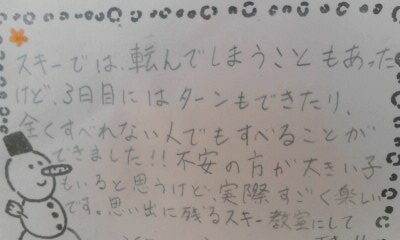 スキーでは、転んでしまうこともあった
けど、3日目にはターンもできたり、
全くすべれない人でもすべることが
できました!!不安の方が大きい子
もいると思うけど、実際すごく楽しい
です。思い出に残るスキー教室にして